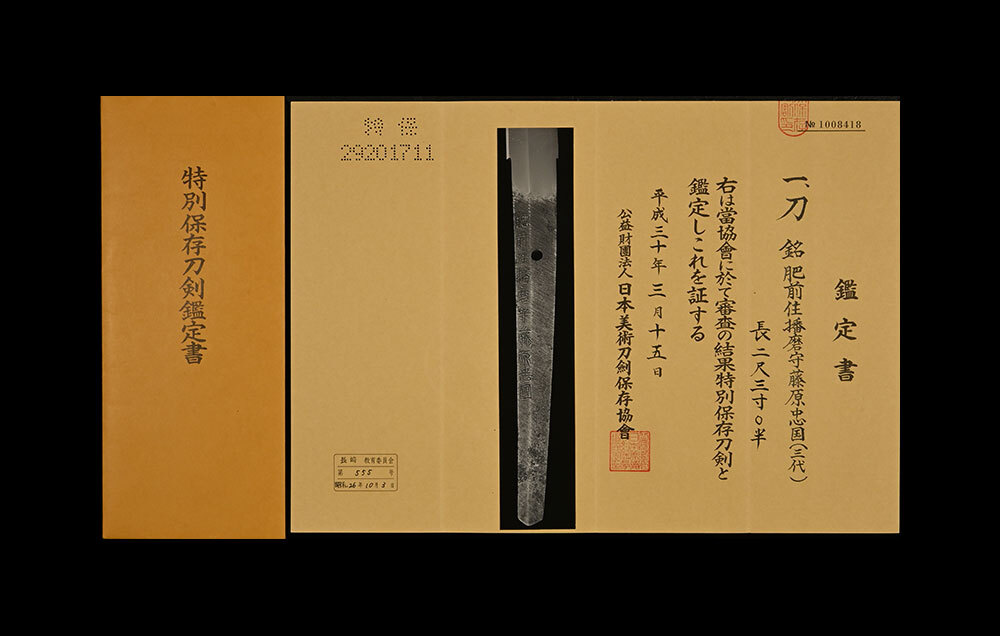 特別保存刀剣鑑定書
№ 1008418
鑑定書
一、刀 銘 肥前住播磨守藤原忠国(三代)
長二尺三寸〇半
右は當協會に於て審査の結果特別保存刀剣と
鑑定しこれを証する
平成三十年三月十五日
公益財團法人 日本美術刀剣保存協會
特保
29201711
長崎 教育委員会
第 555 号
昭和26年10月3日